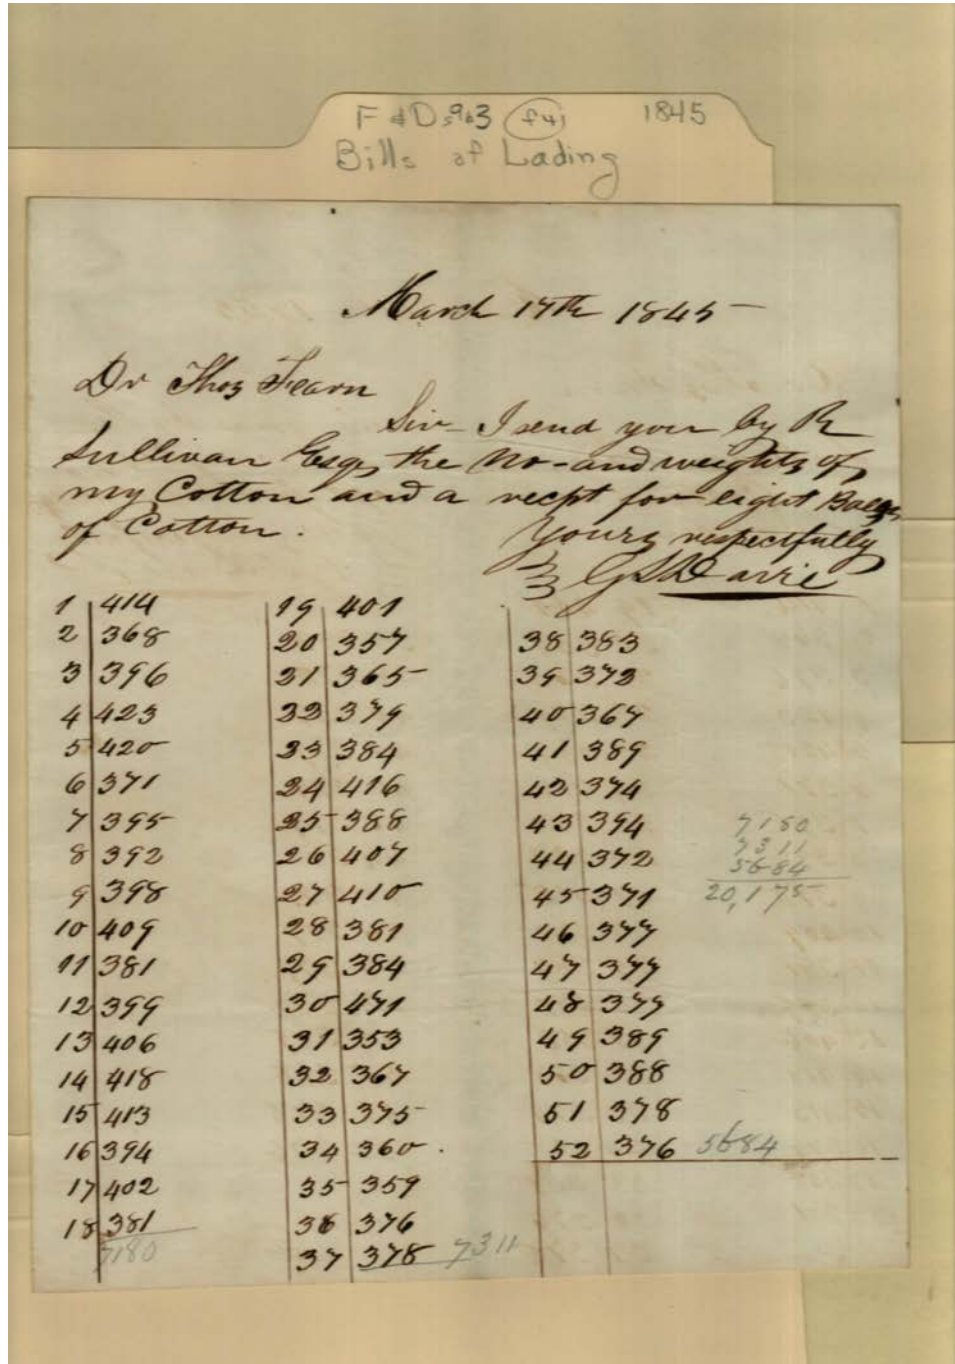 F & D 963 f4i 1845
Bills of Lading
March 17th 1845
Dr Thos Fearn
Sir I send you by R
Sullivan Esqr, the No - and weights of
my Cotton and a recpt for eight Bales
of Cotton.
Yours respectfully
1 414
2 368
3 396
4 423
5 420
6 371
7 395
8 392
9 398
10 409
11 381
12 399
13 406
14 418
15 413
16 394
17 402
18 381
7180
19 401
20 357
21 365
22 379
23 384
24 416
25 388
26 407
27 410
28 381
29 384
30 471
31 353
32 367
33 375
34 360
35 359
36 376
37 378 7311
38 383
39 372
40 367
41 389
42 374
43 394
44 372
45 371
46 377
47 377
48 377
49 389
50 388
51 378
52 376 5684
7180
7311
5684
20,175